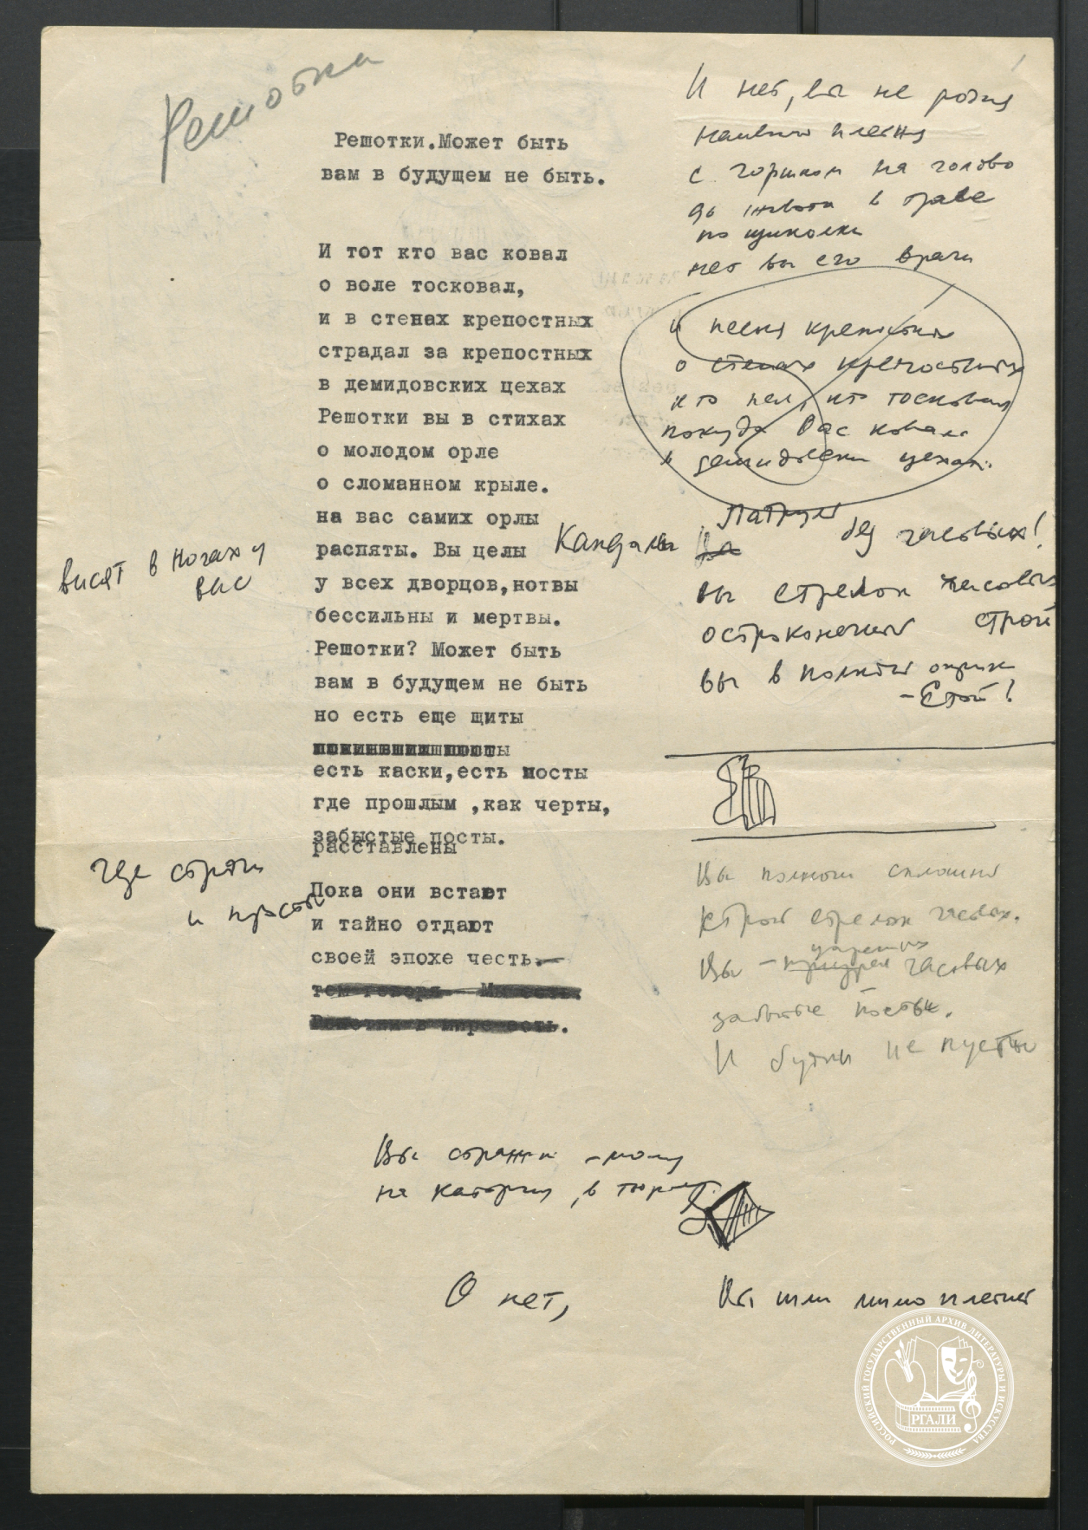 Решотка
Решотки.Может быть
вам в будущем не быть.
И тот кто вас ковал
о воле тосковал,
и в стенах крепостных
страдал за крепостных
в демидовских цехах
Решотки вы в стихах
о молодом орле
о сломанном крыле.
на вас самих орлы
распяты. Вы целы
у всех дворцов,нотвы
бессильны и мертвы.
Решотки? Может быть
вам в будущем не быть
но есть еще щиты
есть каски,есть мосты
где прошлым ,как черты,
забыстые посты.
расставлены
Пока они встают
и тайно отдают
своей эпохе честь.
висят в ногах у
вас
где стражи
и
И нет, вы не родня
плетня
с горшком на голове
до живота в траве
по щиколки
нет вы его враги
и песня крепостных
о стенах крепостных
кто пел, кто тосковал
покуда вас ковал
в демидовских цехах.
Кандалы
Патрули
без часовых!
вы стрелок часовых
остроконечный строй
вы в полночи окрик
-Стой!
Вы полночи сплошной
строй стрелок часовых.
Вы - часовых
забытые посты.
И будки не пусты
Вы стражи -
на каторги, в тюрьму.
О нет,
Вы шли мимо плетней
РОССИЙСКИЙ ГОСУДАРСТВЕННЫЙ АРХИВ ЛИТЕРАТУРЫ И ИСКУССТВА
РГАЛИ